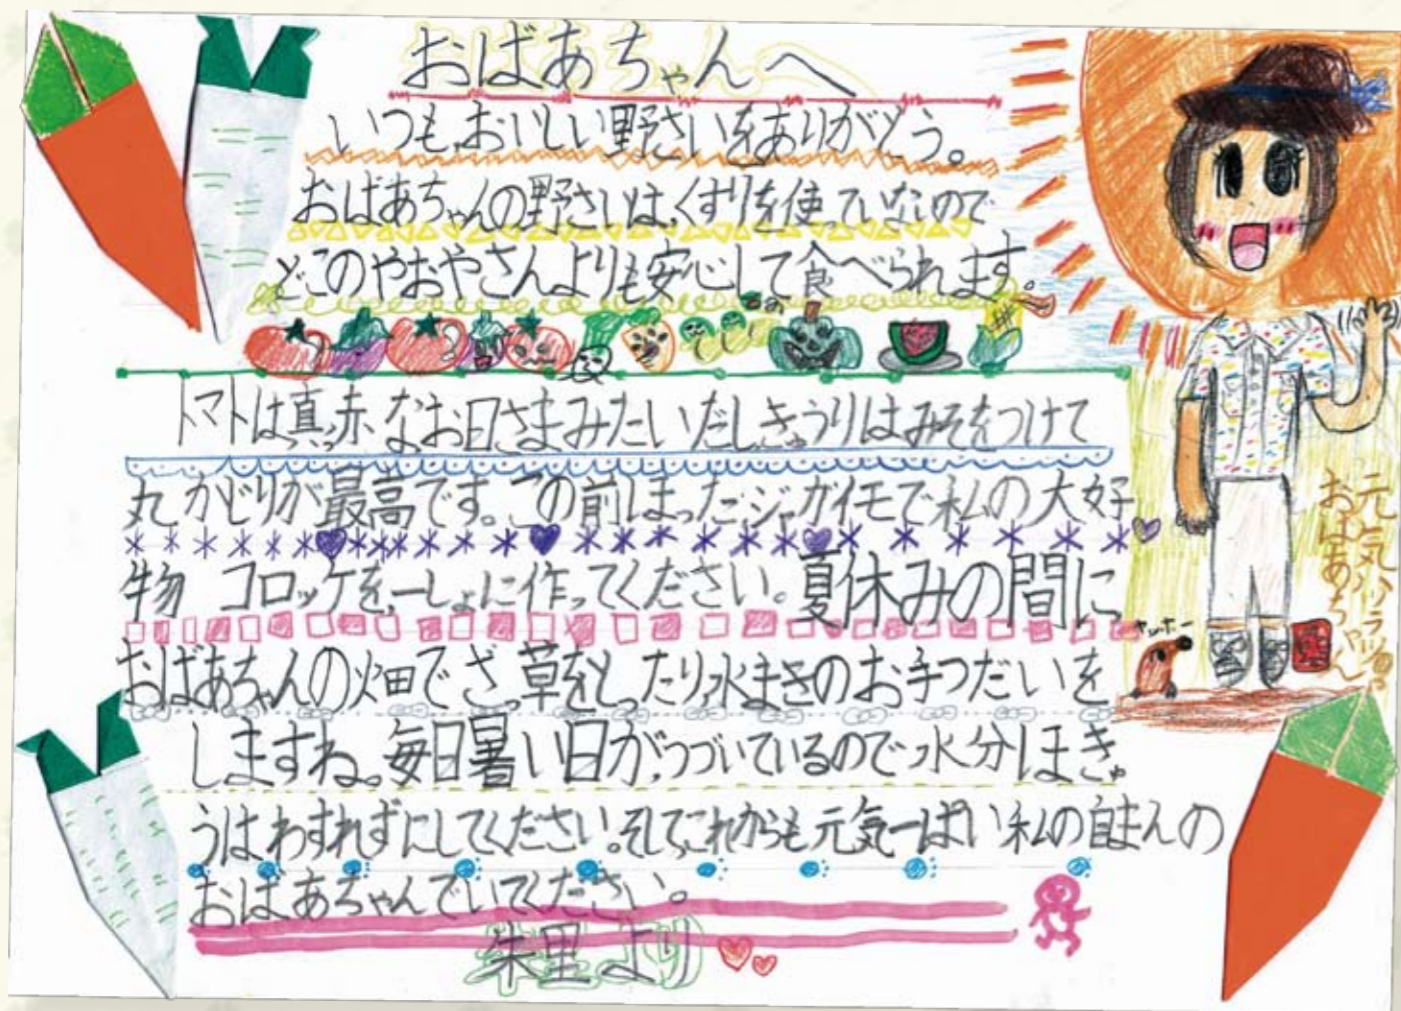 おばあちゃんへ
いつも、おいしい野さいをありがとう。
おばあちゃんの野さいは、くすりを使っていないので
どこのやおやさんよりも安心して食べられます。
トマトは真っ赤なお日さまみたいだし、きゅうりはみそをつけて
丸かじりが最高です。この前ほったジャガイモで私の大好
物 コロッケを、一しょに作ってください。夏休みの間に、
おばあちゃんの畑でざっ草をとったり、水まきのお手つだいを
しますね。毎日暑い日が、つづいているので水分ほきゅ
うはわすれずにしてください。そして、これからも元気一ぱい私の自まんの
おばあちゃんでいてください。
朱里より
元気ハツラツ
おばあちゃん